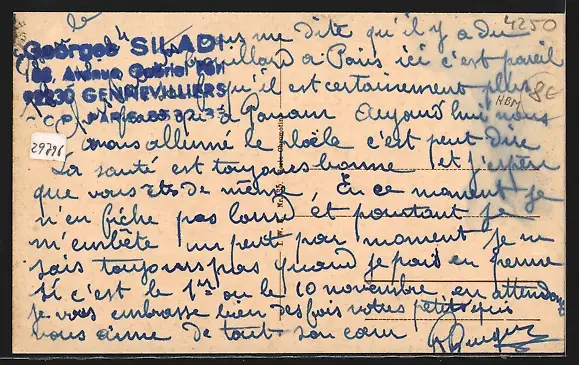 le
4250
vous me dite qu'il y a du
Georges SILADI
brouillard a Paris ici c'est pareil
88, Avenue Gabriel Péri
qu'il est certainement plus
92230 GENNEVILLIERS
HBM
8€
a Aujourd'hui nous
C.C.P. PARIS
29796
avons allumé le poële c'est peut dire
La santé est toujours bonne et j'espère
que vous êtes de même. En ce moment je
n'en fiche pas lourd et pourtant je
m'embête un petit peu par moment je ne
sais toujours pas quand je pars en perme
si c'est le 1er ou le 10 novembre en attendant
je vous embrasse bien des fois votre petit qui
vous aime de tout son cœur